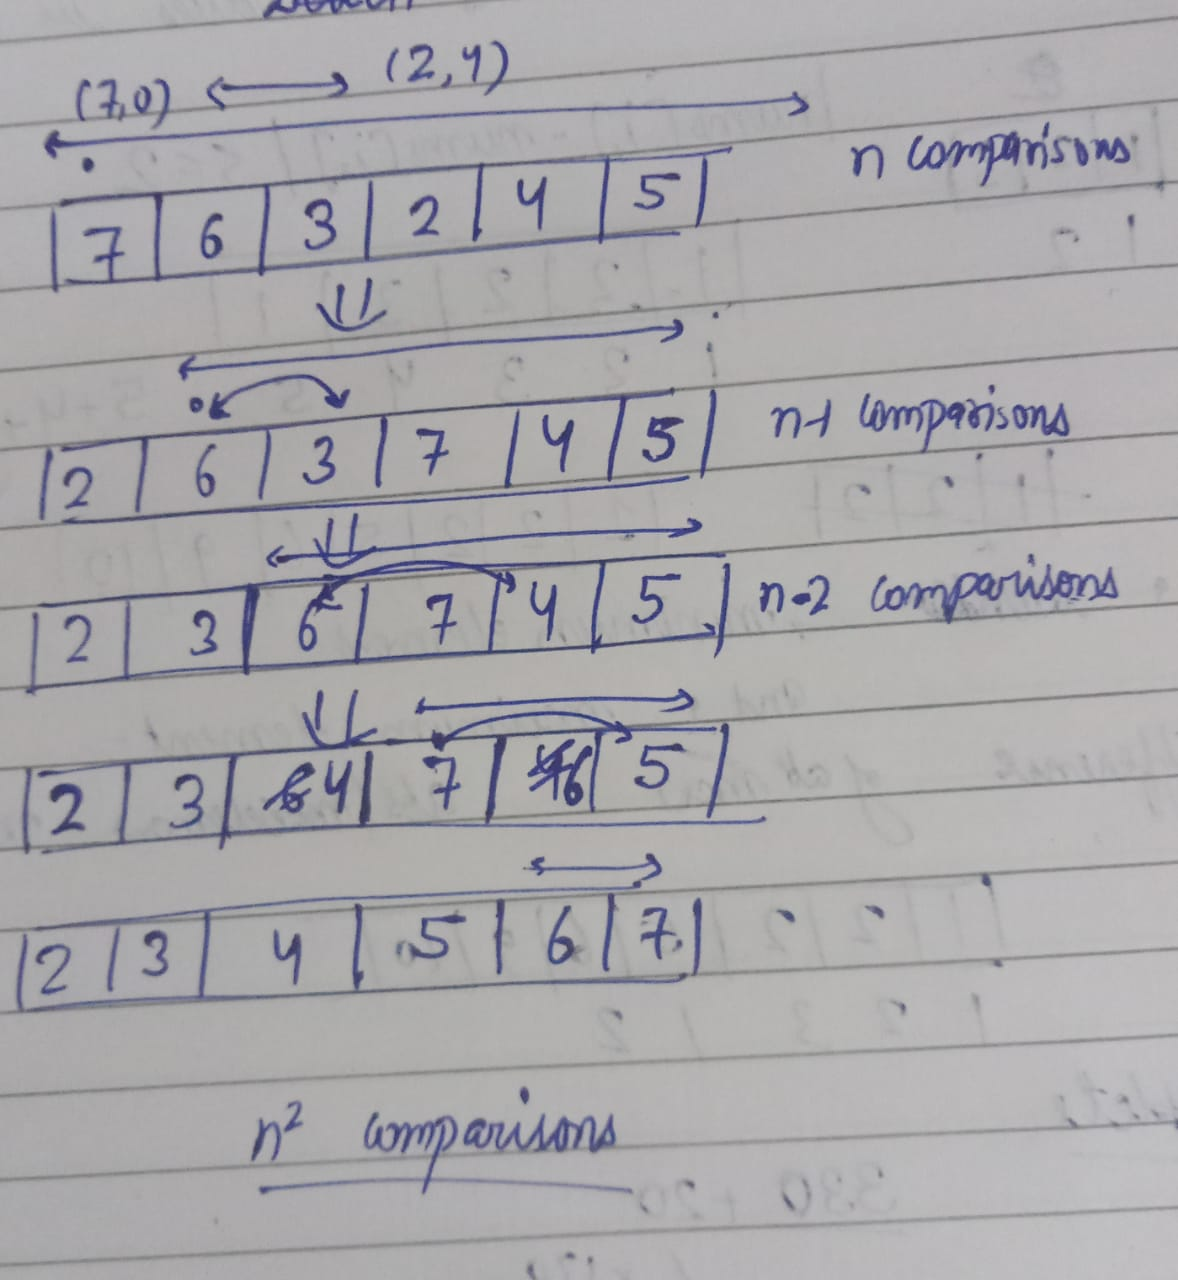 (7,0) ⟷ (2,4)
n comparisons
7 6 3 2 4 5
2 6 3 7 4 5 n-1 comparisons
2 3 6 7 4 5 n-2 comparisons
2 3 4 7 6 5
2 3 4 5 6 7
n² comparisons